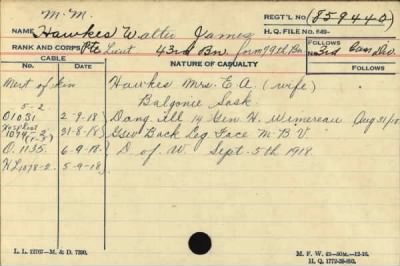 M. M.
REGT'L NO (859440)
NAME Hawkes Walter James
H. Q. FILE NO. 649-
RANK AND CORPS Pte Lieut 43rd Bn. form 79th Bn
FOLLOWS
No. 3rd Can Div.
CABLE
NATURE OF CASUALTY
NO. DATE
FOLLOWS
Next of Kin Hawkes Mrs. E. A. (wife)
5-2. Balgonie Sask.
O1031 2-9-18 Dang. Ill 14 Gen. H. Wimereau Aug 31/18
31-8-18 Gsw Back Leg Face M. B. V
O. 1135 6-9-18 D of W. Sept. 5th 1918.
KL1078-2 5-9-18
L. L. 12707—M. & D. 7390.
M. F. W. 42—50M.—12-16.
H. Q. 1772-39-893.